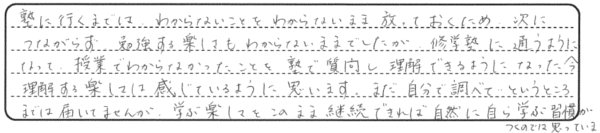 塾に行くまでは わからないことを わからないまま 放っておくため 次に
つながらず 勉強する楽しさもわからないままでしたが 修学塾に通うように
なって、授業でわからなかったことを 塾で質問し 理解できるようになった今
理解する楽しさは 感じているように思います。まだ 自分で調べて…というところ
までは届いてませんが、学ぶ楽しさをこのまま継続できれば自然に自ら学ぶ習慣が
つくのではと思っていま